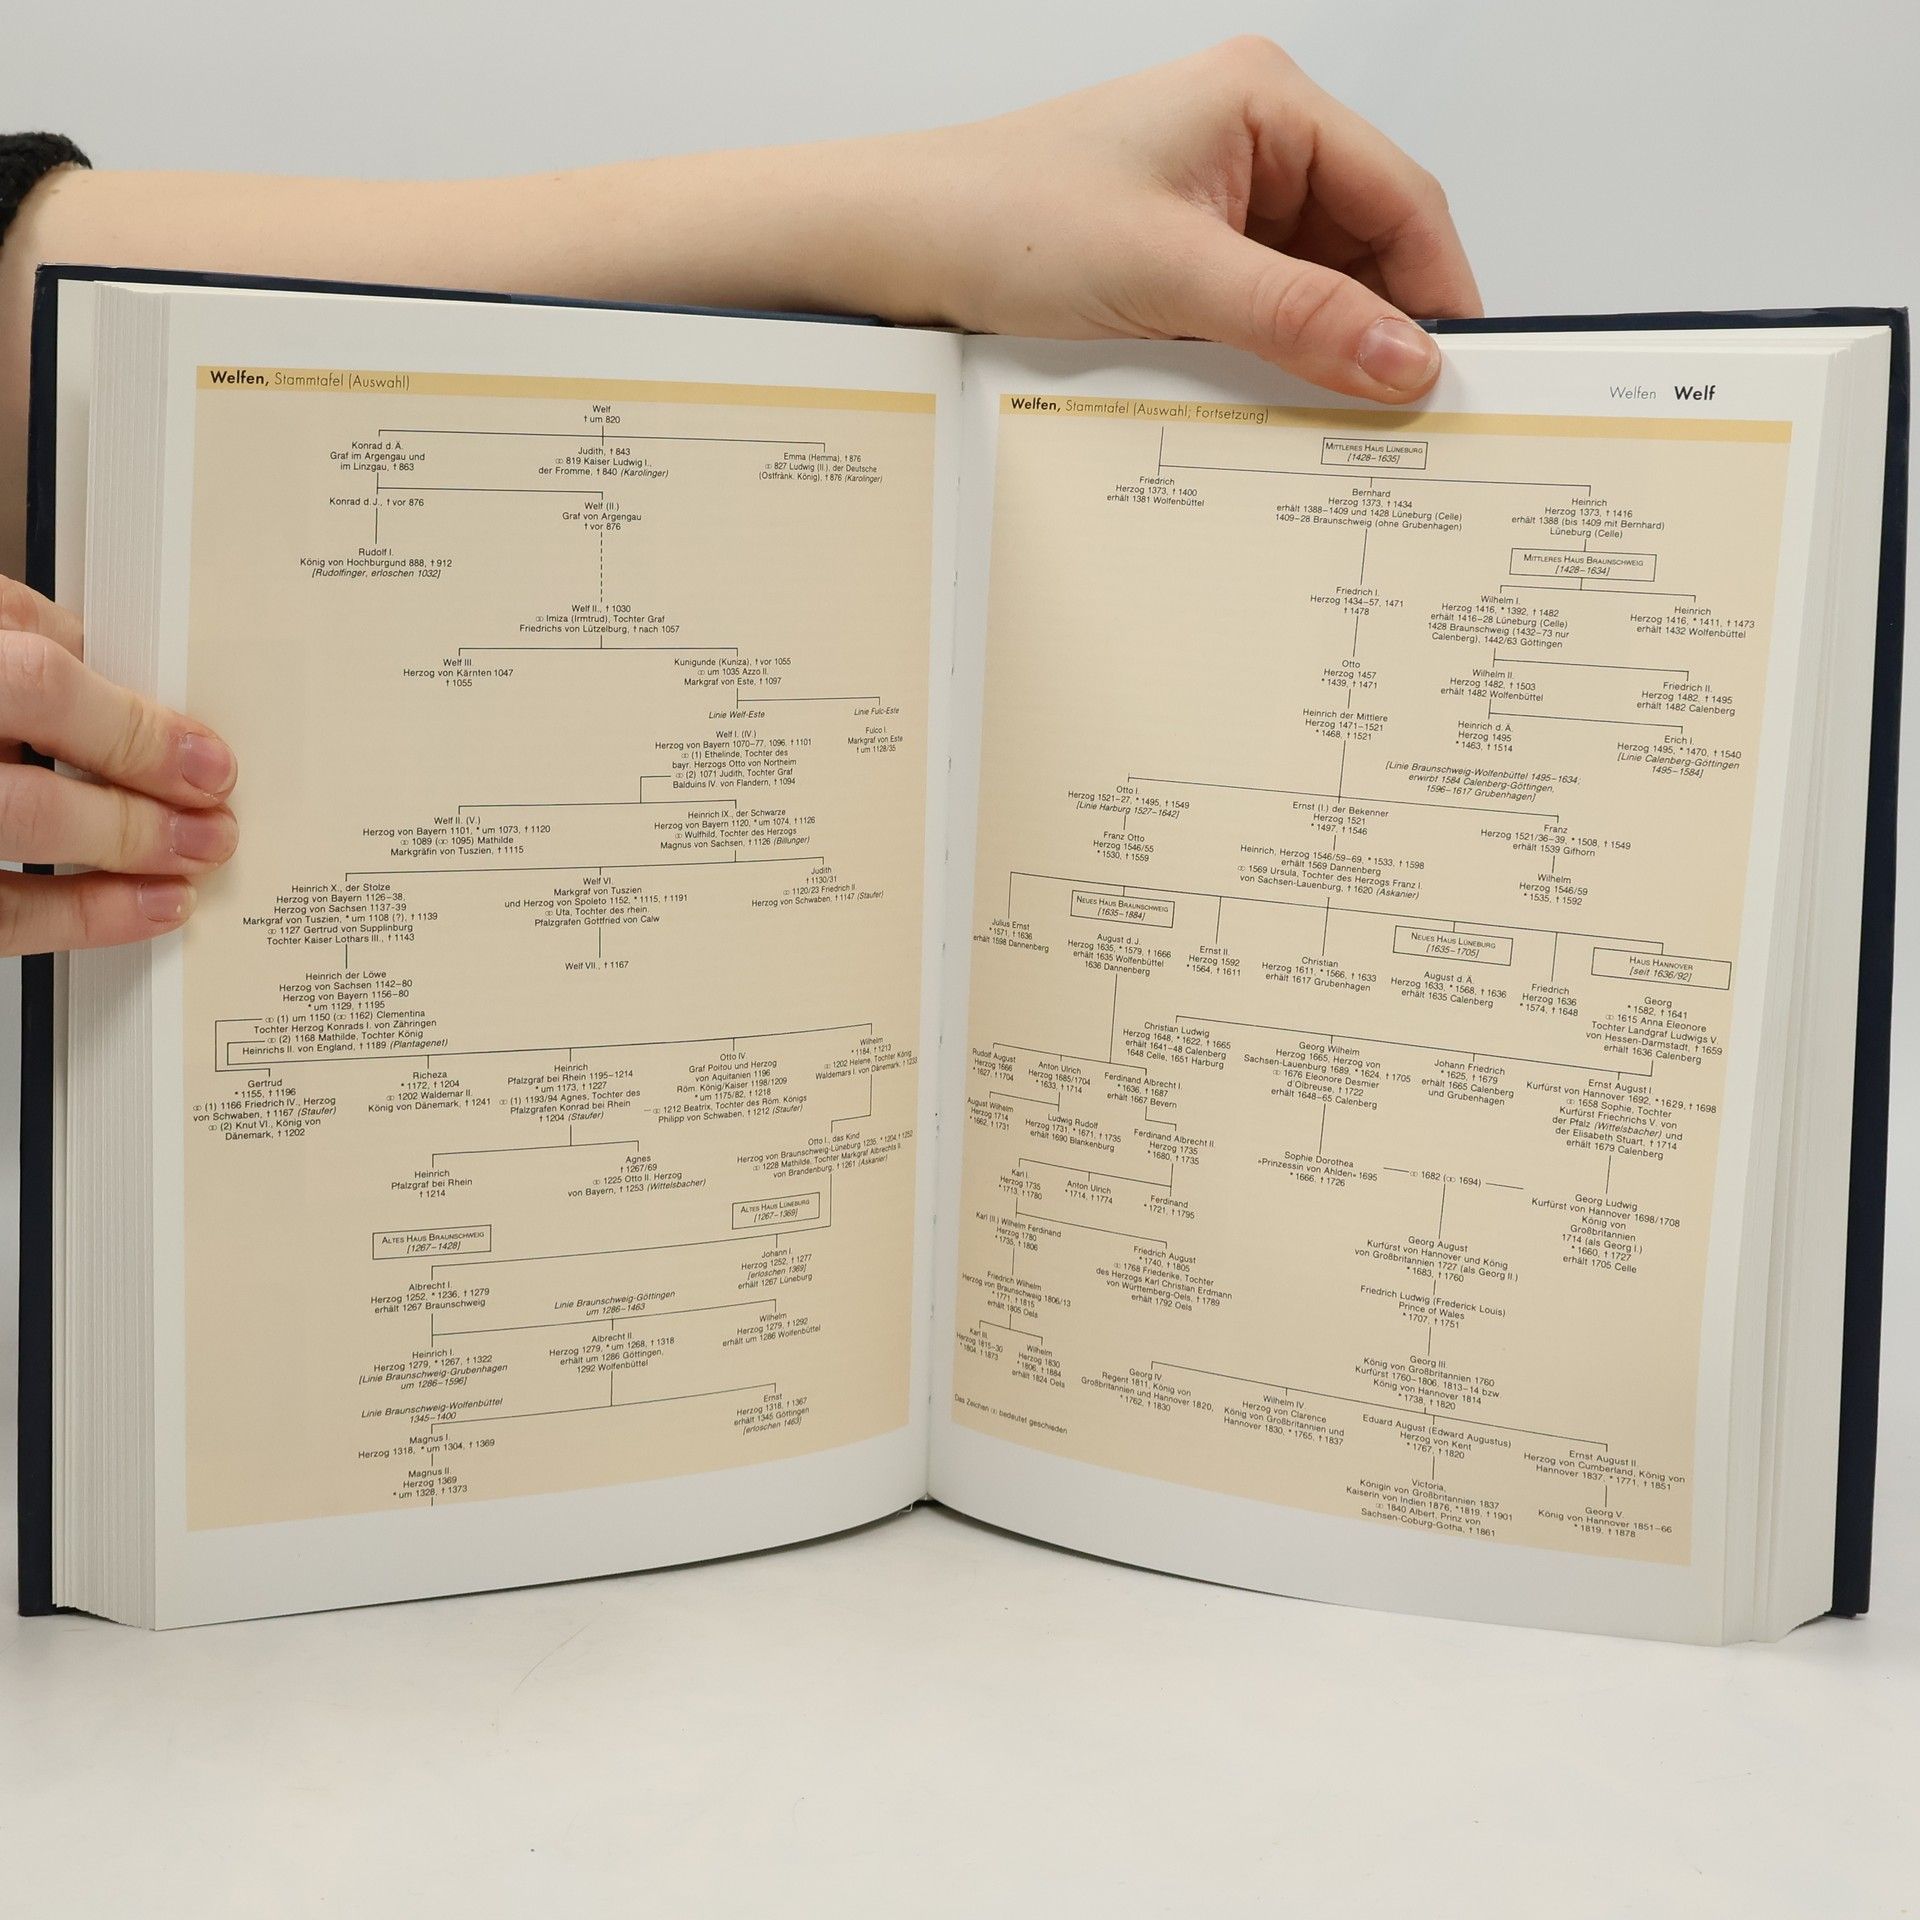 Welfen, Stammtafel (Auswahl)
Welf
† um 820
Konrad d. Ä.
Graf im Argengau und
im Linzgau, † 863
Judith, † 843
⚭ 819 Kaiser Ludwig I.,
der Fromme, † 840 (Karolinger)
Emma (Hemma), † 876
⚭ 827 Ludwig (II.), der Deutsche
(Ostfränk. König), † 876 (Karolinger)
Konrad d. J., † vor 876
Welf (II.)
Graf von Argengau
† vor 876
Rudolf I.
König von Hochburgund 888, † 912
[Rudolfinger, erloschen 1032]
Welf II., † 1030
⚭ Imiza (Irmtrud), Tochter Graf
Friedrichs von Lützelburg, † nach 1057
Welf III.
Herzog von Kärnten 1047
† 1055
Kunigunde (Kuniza), † vor 1055
⚭ um 1035 Azzo II.
Markgraf von Este, † 1097
Linie Welf-Este
Linie Fulc-Este
Welf I. (IV.)
Herzog von Bayern 1070–77, 1096, † 1101
⚭ (1) Ethelinde, Tochter des
bayr. Herzogs Otto von Northeim
⚭ (2) 1071 Judith, Tochter Graf
Balduins IV. von Flandern, † 1094
Fulco I.
Markgraf von Este
† um 1128/35
Welf II. (V.)
Herzog von Bayern 1101, * um 1073, † 1120
⚭ 1089 (⚮ 1095) Mathilde
Markgräfin von Tuszien, † 1115
Heinrich IX., der Schwarze
Herzog von Bayern 1120, * um 1074, † 1126
⚭ Wulfhild, Tochter des Herzogs
Magnus von Sachsen, † 1126 (Billunger)
Heinrich X., der Stolze
Herzog von Bayern 1126–38,
Herzog von Sachsen 1137-39
Markgraf von Tuszien, * um 1108 (?), † 1139
⚭ 1127 Gertrud von Supplinburg
Tochter Kaiser Lothars III., † 1143
Welf VI.
Markgraf von Tuszien
und Herzog von Spoleto 1152, * 1115, † 1191
⚭ Uta, Tochter des rhein.
Pfalzgrafen Gottfried von Calw
Judith
† 1130/31
⚭ 1120/23 Friedrich II.
Herzog von Schwaben, † 1147 (Staufer)
Welf VII., † 1167
Heinrich der Löwe
Herzog von Sachsen 1142–80
Herzog von Bayern 1156–80
* um 1129, † 1195
⚭ (1) um 1150 (⚮ 1162) Clementina
Tochter Herzog Konrads I. von Zähringen
⚭ (2) 1168 Mathilde, Tochter König
Heinrichs II. von England, † 1189 (Plantagenet)
Gertrud
* 1155, † 1196
⚭ (1) 1166 Friedrich IV., Herzog
von Schwaben, † 1167 (Staufer)
⚭ (2) Knut VI., König von
Dänemark, † 1202
Richeza
* 1172, † 1204
⚭ 1202 Waldemar II.
König von Dänemark, † 1241
Heinrich
Pfalzgraf bei Rhein 1195–1214
* um 1173, † 1227
⚭ (1) 1193/94 Agnes, Tochter des
Pfalzgrafen Konrad bei Rhein
† 1204 (Staufer)
Otto IV.
Graf Poitou und Herzog
von Aquitanien 1196
Röm. König/Kaiser 1198/1209
* um 1175/82, † 1218
⚭ 1212 Beatrix, Tochter des Röm. Königs
Philipp von Schwaben, † 1212 (Staufer)
Wilhelm
* 1184, † 1213
⚭ 1202 Helene, Tochter König
Waldemars I. von Dänemark, † 1233
Heinrich
Pfalzgraf bei Rhein
† 1214
Agnes
† 1267/69
⚭ 1225 Otto II. Herzog
von Bayern, † 1253 (Wittelsbacher)
Otto I., das Kind
Herzog von Braunschweig-Lüneburg 1235, * 1204, † 1252
⚭ 1228 Mathilde, Tochter Markgraf Albrechts II.
von Brandenburg, † 1261 (Askanier)
Altes Haus Braunschweig
[1267–1428]
Altes Haus Lüneburg
[1267–1369]
Albrecht I.
Herzog 1252, * 1236, † 1279
erhält 1267 Braunschweig
Johann I.
Herzog 1252, † 1277
[erloschen 1369]
erhält 1267 Lüneburg
Linie Braunschweig-Göttingen
um 1286–1463
Heinrich I.
Herzog 1279, * 1267, † 1322
[Linie Braunschweig-Grubenhagen
um 1286–1596]
Albrecht II.
Herzog 1279, * um 1268, † 1318
erhält um 1286 Göttingen,
1292 Wolfenbüttel
Wilhelm
Herzog 1279, † 1292
erhält um 1286 Wolfenbüttel
Linie Braunschweig-Wolfenbüttel
1345–1400
Magnus I.
Herzog 1318, * um 1304, † 1369
Ernst
Herzog 1318, † 1367
erhält 1345 Göttingen
[erloschen 1463]
Magnus II.
Herzog 1369
* um 1328, † 1373
Welfen Welf
Welfen, Stammtafel (Auswahl; Fortsetzung)
Mittleres Haus Lüneburg
[1428–1635]
Friedrich
Herzog 1373, † 1400
erhält 1381 Wolfenbüttel
Bernhard
Herzog 1373, † 1434
erhält 1388–1409 und 1428 Lüneburg (Celle)
1409–28 Braunschweig (ohne Grubenhagen)
Heinrich
Herzog 1373, † 1416
erhält 1388 (bis 1409 mit Bernhard)
Lüneburg (Celle)
Mittleres Haus Braunschweig
[1428–1634]
Friedrich I.
Herzog 1434–57, 1471
† 1478
Wilhelm I.
Herzog 1416, * 1392, † 1482
erhält 1416–28 Lüneburg (Celle)
1428 Braunschweig (1432–73 nur
Calenberg), 1442/63 Göttingen
Heinrich
Herzog 1416, * 1411, † 1473
erhält 1432 Wolfenbüttel
Otto
Herzog 1457
* 1439, † 1471
Wilhelm II.
Herzog 1482, † 1503
erhält 1482 Wolfenbüttel
Friedrich II.
Herzog 1482, † 1495
erhält 1482 Calenberg
Heinrich der Mittlere
Herzog 1471–1521
* 1468, † 1521
Heinrich d. Ä.
Herzog 1495
* 1463, † 1514
Erich I.
Herzog 1495, * 1470, † 1540
[Linie Calenberg-Göttingen
1495–1584]
[Linie Braunschweig-Wolfenbüttel 1495–1634;
erwirbt 1584 Calenberg-Göttingen,
1596–1617 Grubenhagen]
Otto I.
Herzog 1521–27, * 1495, † 1549
[Linie Harburg 1527–1642]
Ernst (I.) der Bekenner
Herzog 1521
* 1497, † 1546
Franz
Herzog 1521/36–39, * 1508, † 1549
erhält 1539 Gifhorn
Franz Otto
Herzog 1546/55
* 1530, † 1559
Heinrich, Herzog 1546/59–69, * 1533, † 1598
erhält 1569 Dannenberg
⚭ 1569 Ursula, Tochter des Herzogs Franz I.
von Sachsen-Lauenburg, † 1620 (Askanier)
Wilhelm
Herzog 1546/59
* 1535, † 1592
Neues Haus Braunschweig
[1635–1884]
Neues Haus Lüneburg
[1635–1705]
Haus Hannover
[seit 1636/92]
Julius Ernst
* 1571, † 1636
erhält 1598 Dannenberg
August d. J.
Herzog 1635, * 1579, † 1666
erhält 1635 Wolfenbüttel
1636 Dannenberg
Ernst II.
Herzog 1592
* 1564, † 1611
Christian
Herzog 1611, * 1566, † 1633
erhält 1617 Grubenhagen
August d. Ä.
Herzog 1633, * 1568, † 1636
erhält 1635 Calenberg
Friedrich
Herzog 1636
* 1574, † 1648
Georg
* 1582, † 1641
⚭ 1615 Anna Eleonore
Tochter Landgraf Ludwigs V.
von Hessen-Darmstadt, † 1659
erhält 1636 Calenberg
Christian Ludwig
Herzog 1648, * 1622, † 1665
erhält 1641–48 Calenberg
1648 Celle, 1651 Harburg
Georg Wilhelm
Herzog 1665, Herzog von
Sachsen-Lauenburg 1689, * 1624, † 1705
⚭ 1676 Eleonore Desmier
d'Olbreuse, † 1722
erhält 1648–65 Calenberg
Johann Friedrich
* 1625, † 1679
erhält 1665 Calenberg
und Grubenhagen
Ernst August I.
Kurfürst von Hannover 1692, * 1629, † 1698
⚭ 1658 Sophie, Tochter
Kurfürst Friechrichs V. von
der Pfalz (Wittelsbacher) und
der Elisabeth Stuart, † 1714
erhält 1679 Calenberg
Rudolf August
Herzog 1666
* 1627, † 1704
Anton Ulrich
Herzog 1685/1704
* 1633, † 1714
Ferdinand Albrecht I.
* 1636, † 1687
erhält 1667 Bevern
August Wilhelm
Herzog 1714
* 1662, † 1731
Ludwig Rudolf
Herzog 1731, * 1671, † 1735
erhält 1690 Blankenburg
Ferdinand Albrecht II.
Herzog 1735
* 1680, † 1735
Sophie Dorothea
»Prinzessin von Ahlden« 1695
* 1666, † 1726
⚭ 1682 (⚮ 1694)
Georg Ludwig
Kurfürst von Hannover 1698/1708
König von
Großbritannien
1714 (als Georg I.)
* 1660, † 1727
erhält 1705 Celle
Karl I.
Herzog 1735
* 1713, † 1780
Anton Ulrich
* 1714, † 1774
Ferdinand
* 1721, † 1795
Karl (II.) Wilhelm Ferdinand
Herzog 1780
* 1735, † 1806
Friedrich August
* 1740, † 1805
⚭ 1768 Friederike, Tochter
des Herzogs Karl Christian Erdmann
von Württemberg-Oels, † 1789
erhält 1792 Oels
Georg August
Kurfürst von Hannover und König
von Großbritannien 1727 (als Georg II.)
* 1683, † 1760
Friedrich Wilhelm
Herzog von Braunschweig 1806/13
* 1771, † 1815
erhält 1805 Oels
Friedrich Ludwig (Frederick Louis)
Prince of Wales
* 1707, † 1751
Karl III.
Herzog 1815–30
* 1804, † 1873
Wilhelm
Herzog 1830
* 1806, † 1884
erhält 1824 Oels
Georg III.
König von Großbritannien 1760
Kurfürst 1760–1806, 1813–14 bzw.
König von Hannover 1814
* 1738, † 1820
Georg IV.
Regent 1811, König von
Großbritannien und Hannover 1820,
* 1762, † 1830
Wilhelm IV.
Herzog von Clarence
König von Großbritannien und
Hannover 1830, * 1765, † 1837
Eduard August (Edward Augustus)
Herzog von Kent
* 1767, † 1820
Ernst August II.
Herzog von Cumberland, König von
Hannover 1837, * 1771, † 1851
Victoria,
Königin von Großbritannien 1837
Kaiserin von Indien 1876, * 1819, † 1901
⚭ 1840 Albert, Prinz von
Sachsen-Coburg-Gotha, † 1861
Georg V.
König von Hannover 1851–66
* 1819, † 1878
Das Zeichen ⚮ bedeutet geschieden